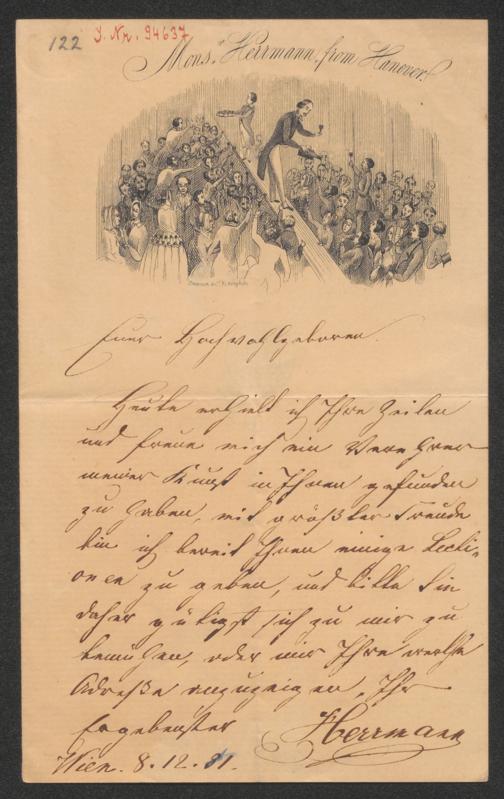 122
J. Nr. 94637
Mons. Herrmann, from Hanover.
Euer Hochwohlgeboren.
Heute erhielt ich Ihre Zeilen
und freue mich ein Verehrer
meiner Kunst in Ihnen gefunden
zu haben, mit größter Freude
bin ich bereit Ihnen einige Lecti-
onen zu geben, und bitte Sie
daher gütigst sich zu mir zu
bemühen, oder mir Ihre werthe
Adreße anzuzeigen, Ihr
Ergebenster Herrmann
Wien. 8.12.51.